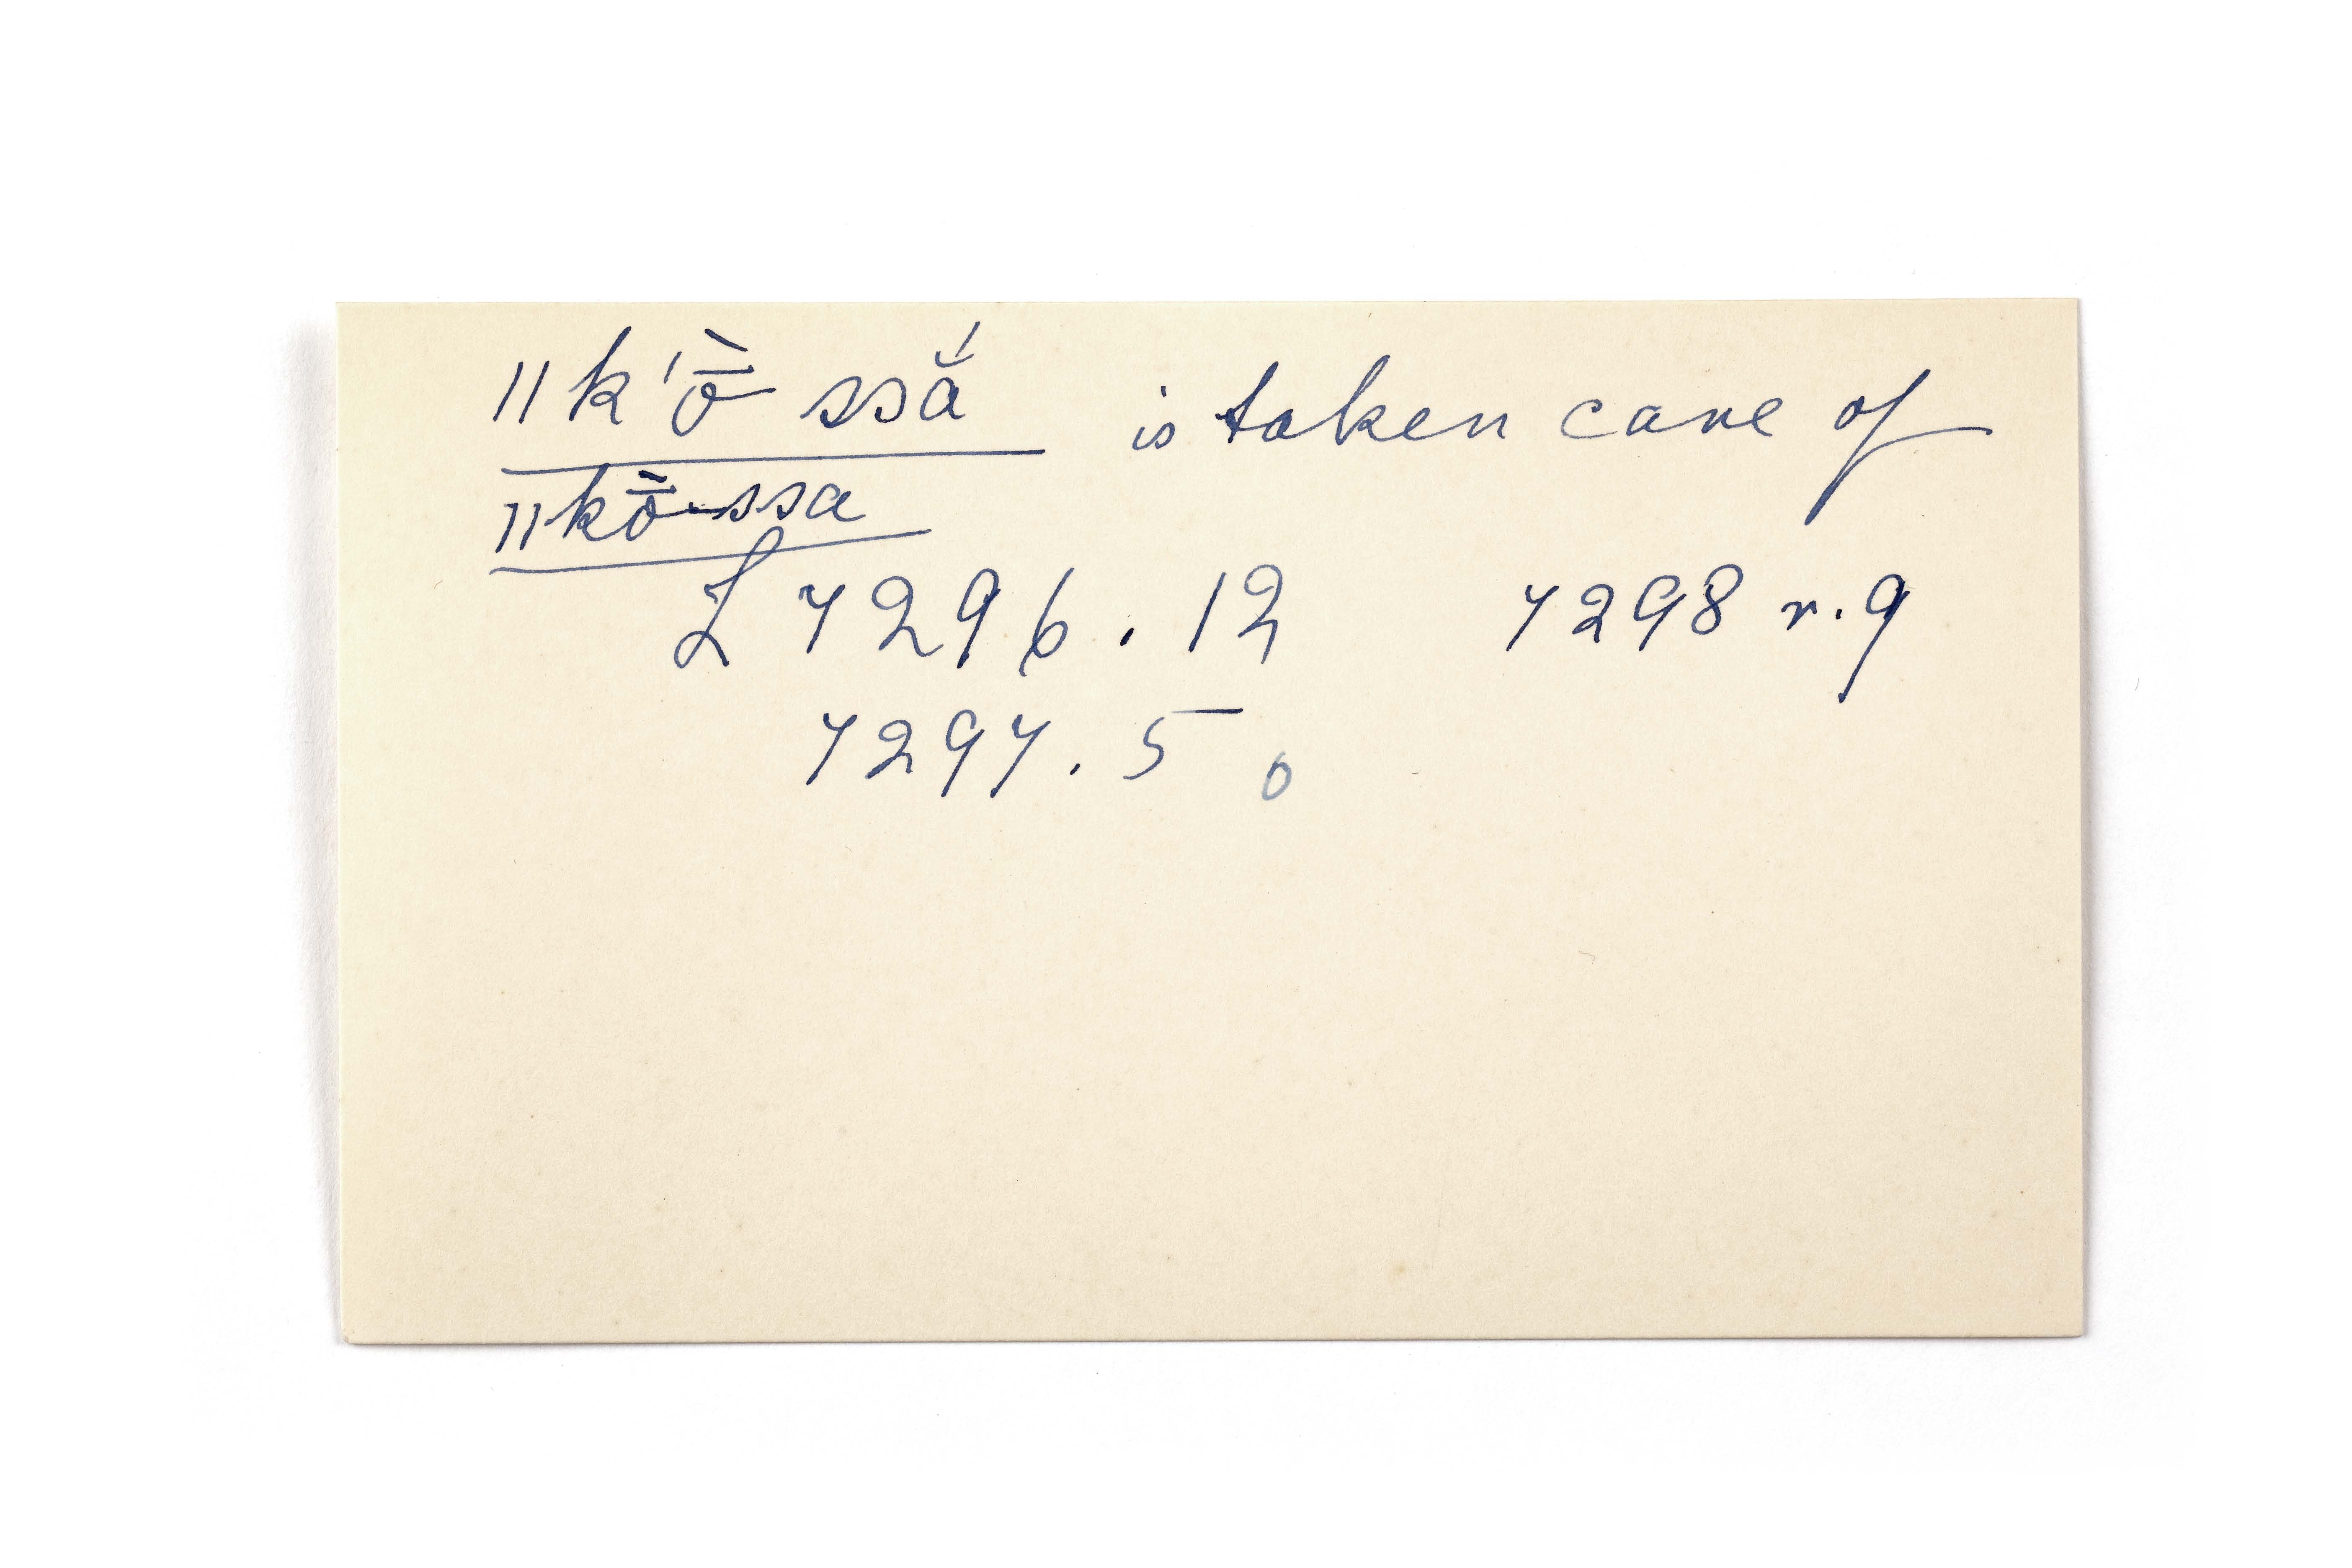 ǁk'ṑ ssắ is taken care of
ǁkṑ-ssa
L 7296.12 7298 r.9
7297.5 o